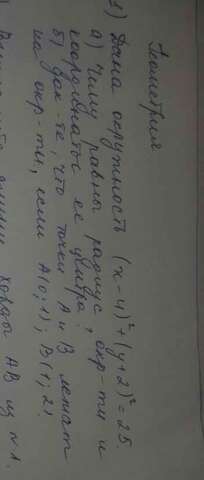 Геометрия
1) Дана окружность (x-4)²+(y+2)²=25.
а) Чему равны радиус окр-ти и
координаты ее центра;
б) док-те, что точки A и B лежат
на окр-ти, если A(0;1); B(1;2)
хорды AB из п 1.